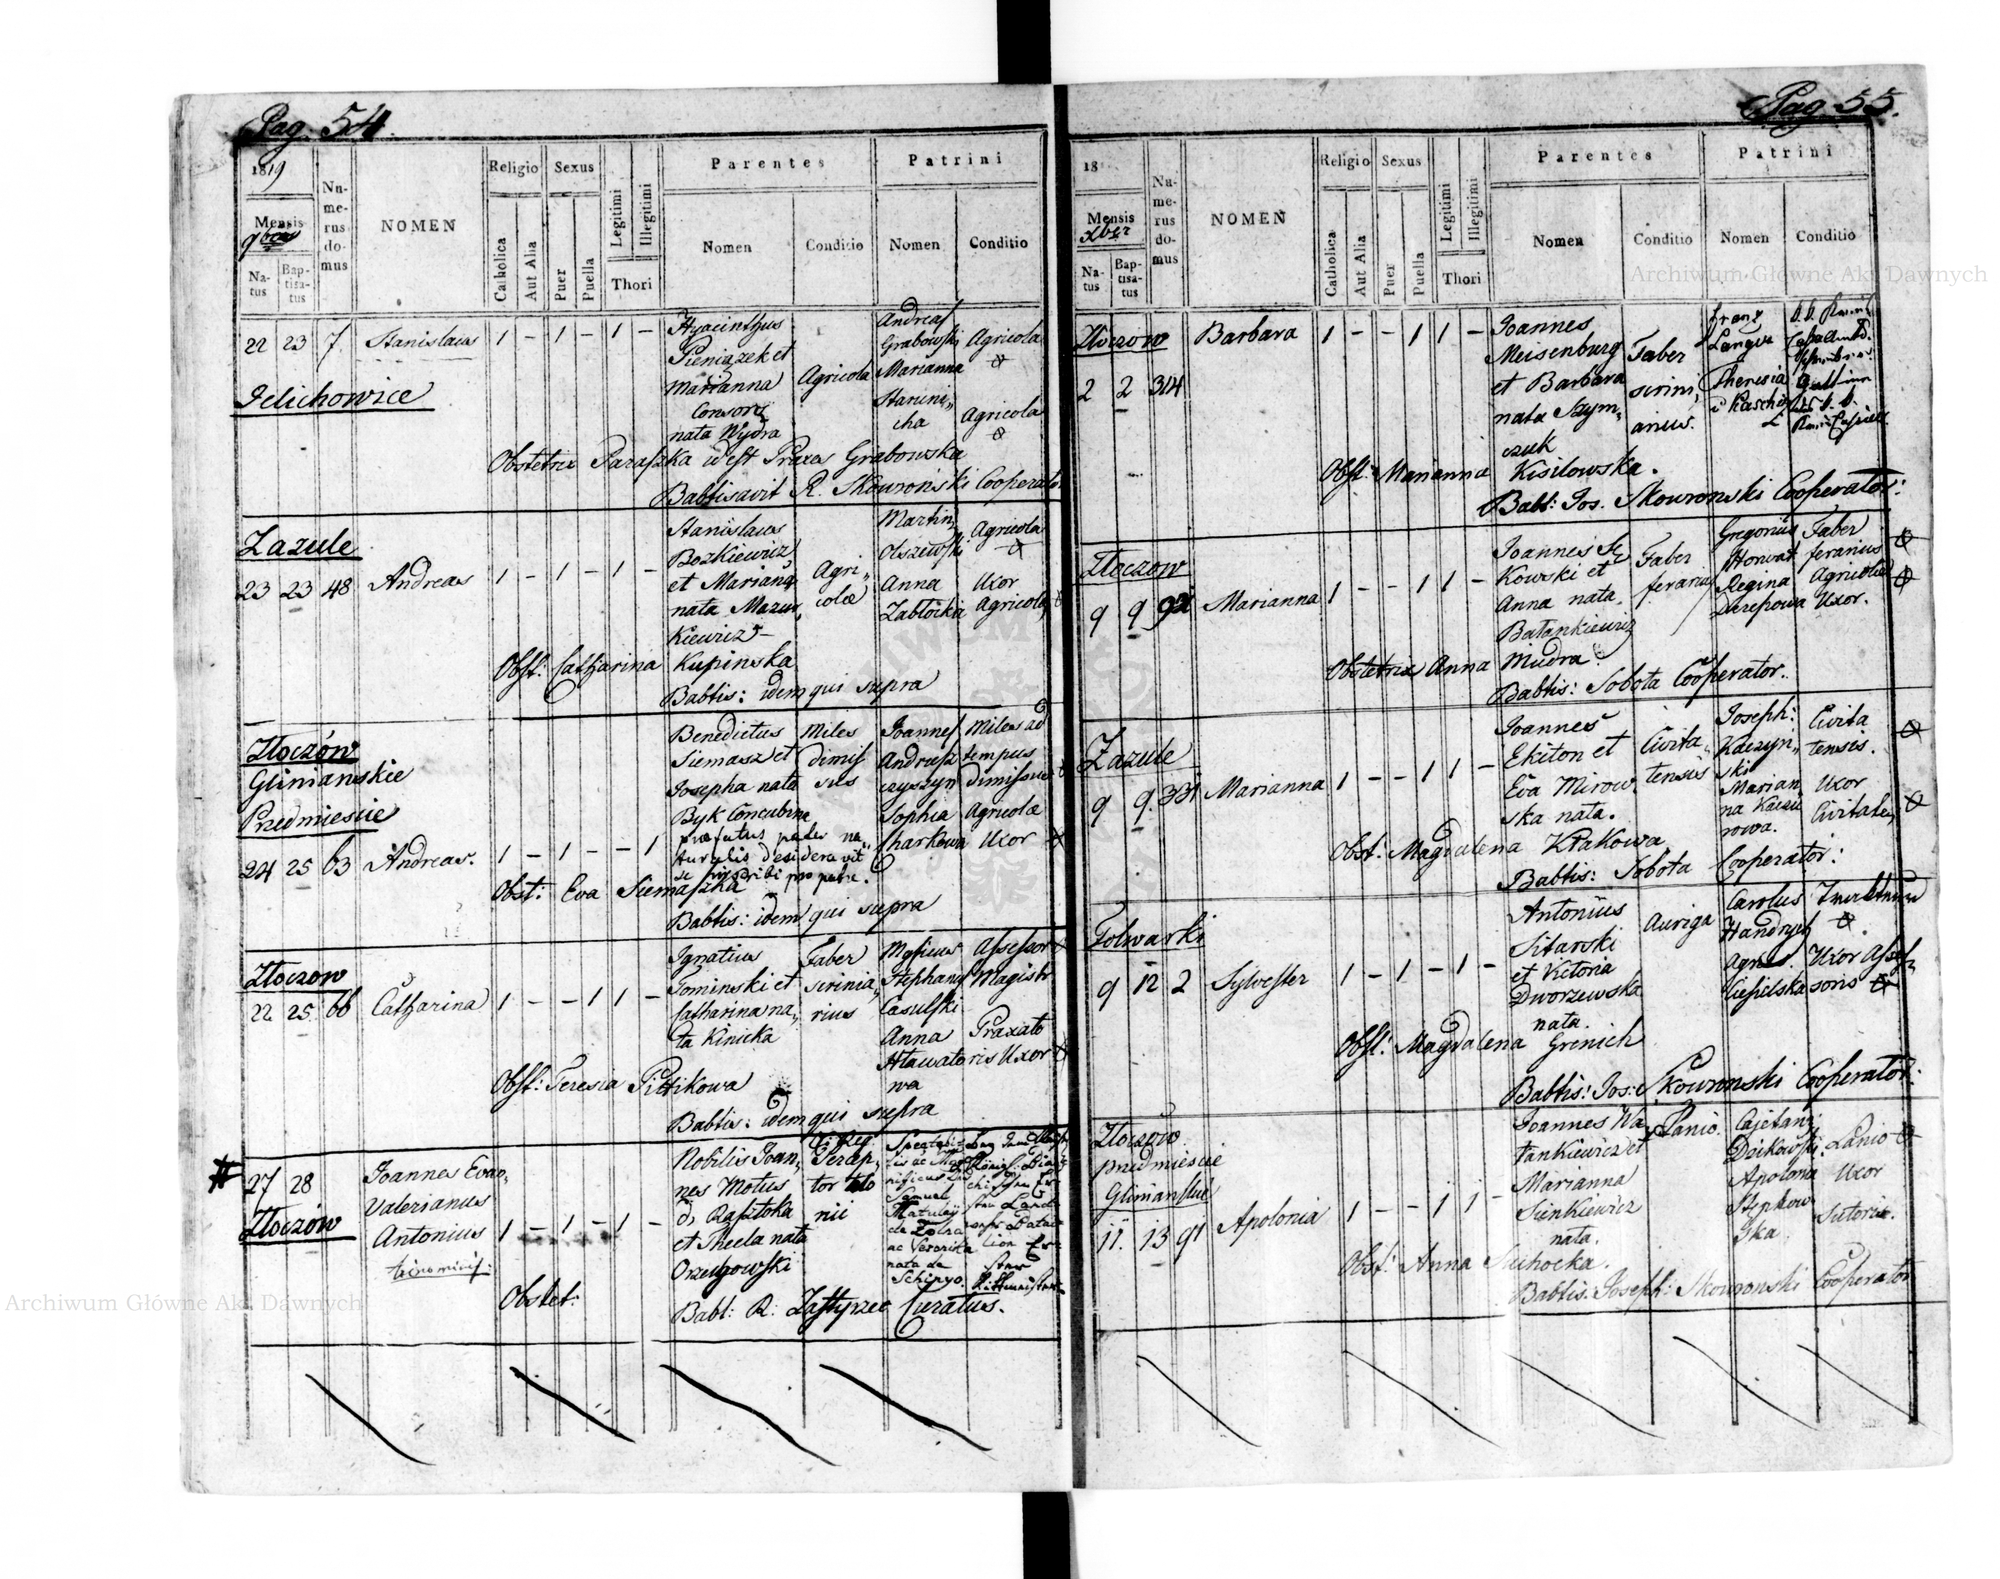 Pag. 54.
1819
Mensis
9bris
Na-
tus
Bap-
tisa-
tus
Nu-
me-
rus
do-
mus
NOMEN
Religio
Catholica
Aut Alia
Sexus
Puer
Puella
Legitimi
Illegitimi
Thori
Parentes
Nomen
Conditio
Patrini
Nomen
Conditio
22 23 7. Stanislaus 1 – 1 – 1 –
Jelichowice
Hyacinthus
Pieniązek et
Marianna
Consors
nata Wydra
Agricola
Andreas
Grabowski
Marianna
Agricola
Agricola
Obstetrix Paraszka id est Praxa Grabowska
Babtisavit R. Skowroński Cooperator
Zazule
23 23 48 Andreas 1 – 1 – 1 –
Stanislaus
Bozkiewicz
et Marianna
nata Mazur,,
kiewicz –
Agri,,
colæ
Martin,,
Olszewski
Anna
Zabłocka
Agricola
Uxor
Agricola
Obst: Catharina Kupinska
Babtis: idem qui supra
Złoczów
Glinianskie
Przedmiescie
24 25 63 Andreas. 1 – 1 – – 1
Benedictus
Siemasz et
Josepha nata
Byk Concubina
præfatus pater na,,
turalis desideravit
se inscribi pro patre.
Miles
dimis
sus
Joannes
Andrusz
czyszyn
Sophia
Charkowa
Miles ad
tempus
Dimissus
Agricolæ
Uxor
Obst: Eva Siemaszka
Babtis: idem qui supra
Złoczow
22 25 66 Catharina 1 – – 1 1 –
Ignatius
Tominski et
Catharina na,,
ta Kinicka
Faber
scrinia,,
rius
Stephanus
Casulski
Anna
Hawato
wa
Assessor
Magistr
Praxato
ris Uxor
Obst: Teresia Pittikowa
Babtis: idem qui supra
27 28
Złoczów
Joannes Evan,
Valerianus
Antonius
trinominis:
1 – 1 – 1 –
Nobilis Joan,,
nes Motus
et Thecla nata
Orzechowski
Samuel
ac Veronika
nata de
Schipyo.
Rittmeister
Obstet:
Babt: R: Zastyrzec Curatus.
Pag. 55.
18
Mensis
Xber
Na-
tus
Bap-
tisa-
tus
Nu-
me-
rus
do-
mus
NOMEN
Religio
Catholica
Aut Alia
Sexus
Puer
Puella
Legitimi
Illegitimi
Thori
Parentes
Nomen
Conditio
Patrini
Nomen
Conditio
Złoczow
2 2 314 Barbara 1 – – 1 1 –
Joannes
Meisenburg
et Barbara
nata Szym,,
czuk
Faber
scrini,
arius.
Franz
Langer
Theresia
Obst: Marianna Kisilowska.
Babt: Jos. Skowronski Cooperator:
Złoczow
9 9 92 Marianna 1 – – 1 1 –
Kowski et
Anna nata
Bałankiewicz
Faber
ferarius
Gregorius
Horwat
Regina
Derepowa
Faber
ferarius
Agricolæ
Uxor.
Obstetrix Anna Mudra.
Babtis: Sobota Cooperator.
Zazule
9 9. 331 Marianna 1 – – 1 1 –
Joannes
Ekiton et
Eva Mirow,
ska nata.
Civita,,
tensis
Joseph:
Kaczyn,,
ski
Marian
na
rowa.
Civita
tensis.
Uxor
Civitatens
Obst: Magdalena Kłakowa
Babtis: Sobota Cooperator:
Folwarki
9 12 2 Sylvester 1 – 1 – 1 –
Antonius
Sitarski
et Victoria
Dworzewska
nata.
Auriga
Carolus
Handrych
Agnes
Ciesielska
Uxor Asses,,
soris
Obst: Magdalena Grenich
Babtis: Jos: Skowronski Cooperator:
Złoczow
przedmiescie
Glinianskie
11. 13 91 Apolonia 1 – – 1 1 –
Joannes Wa
tankiewicz et
Marianna
Sienkiewicz
nata.
Lanio.
Cajetan,
Dzikowski
Apolona
Stepkow
ska.
Lanio
Uxor
Sutoris.
Obst: Anna Suchocka.
Babtis: Joseph: Skowronski Cooperator
Archiwum Główne Akt Dawnych
Archiwum Główne Akt Dawnych